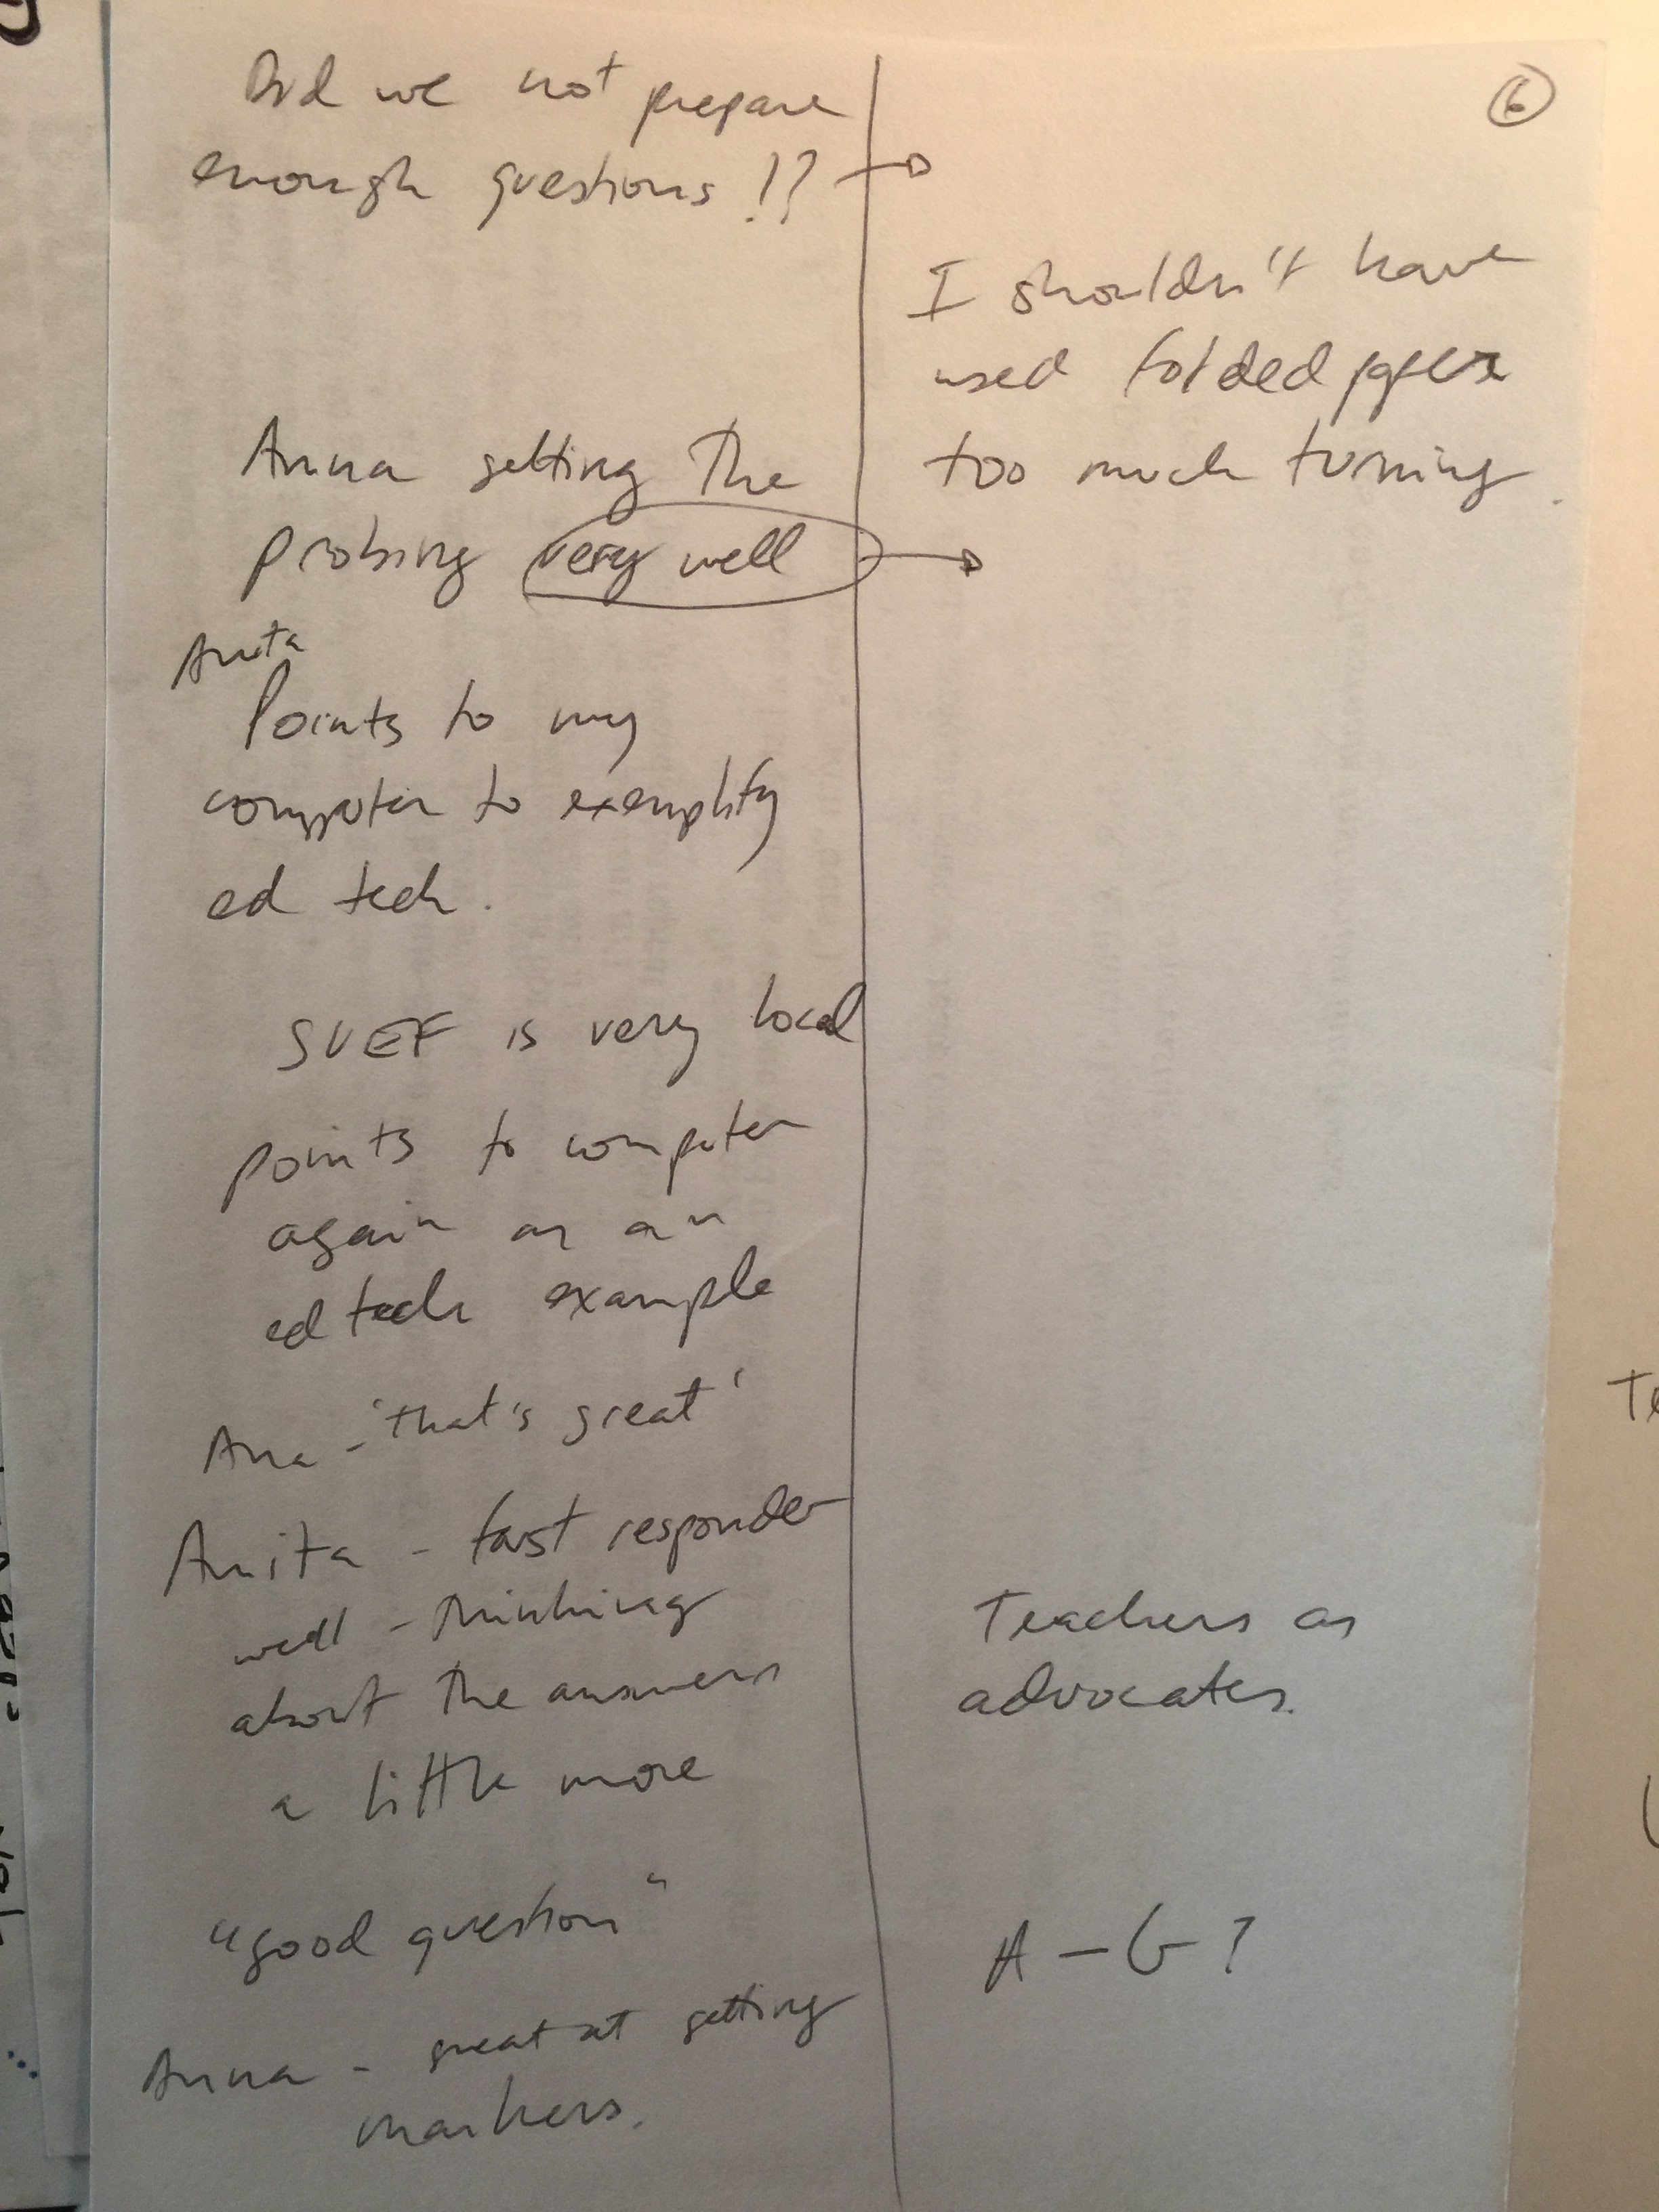 6
Did we not prepare
enough questions !?
Anna getting the
probing very well
Anita
Points to my
computer to exemplify
ed tech.
SVEF is very local
points to computer
again as an
ed tech example
Ana - 'that's great'
Anita - fast responder
well - thinking
about the answers
a little more
"good question"
Anna - great at getting
markers.
I shouldn't have
used folded
too much turning.
Teachers as
advocates.
A - G ?